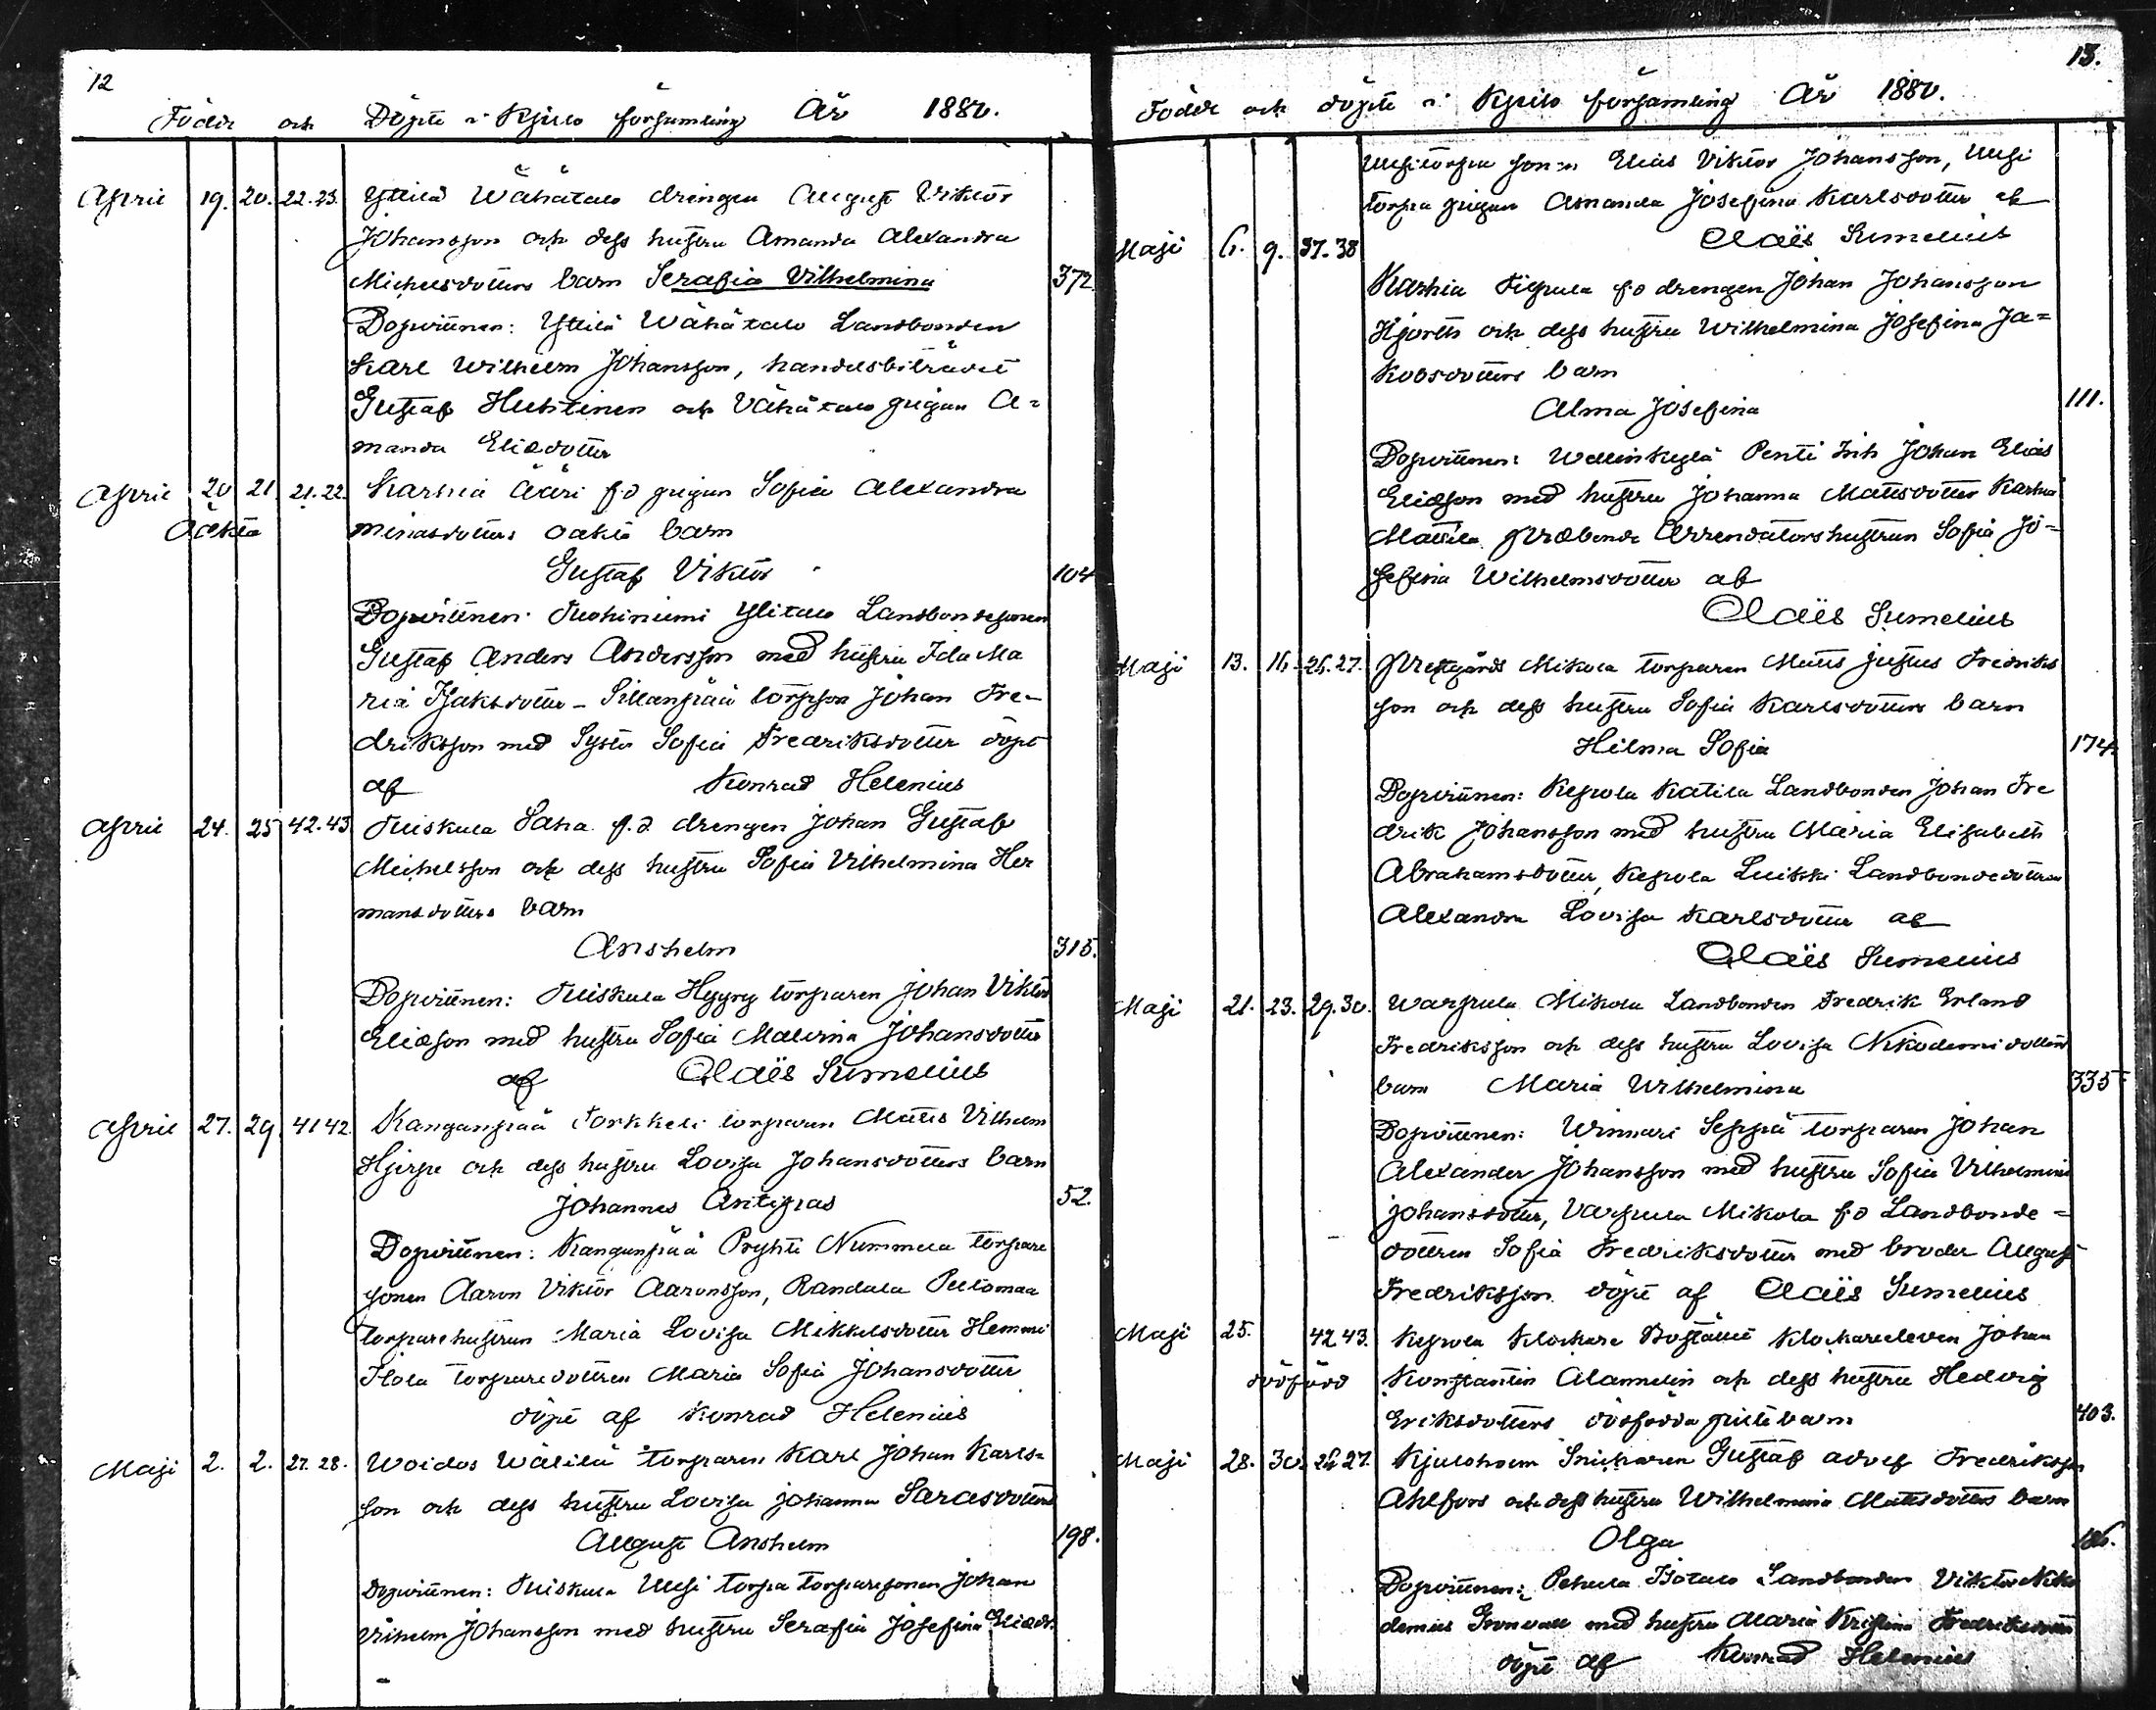 12
Födde och Döpte i Kjulo församling År 1880.
April 19. 20. 22.23. Yttilä Wähätalo drengen August Viktor
Johansson och dess hustru Amanda Alexandra
Michelsdotters barn Serafia Vilhelmina 372.
Dopvittnen: Yttilä Wähätalo Landbonden
Karl Wilhelm Johansson, handelsbiträdet
Gustaf Huhtinen och Vähätalo pigan A=
manda Eliædotter
April 20 21 21.22. Karhia Ääri f.d pigan Sofia Alexandra
Oäkta
Minasdotters oäkta barn
Gustaf Viktor 104
Dopvittnen: Tuohiniemi Ylitalo Landbondesonen
Gustaf Anders Andersson med hustru Ida Ma
ria Isaksdotter - Sillanpää torpson Johan Fre-
driksson med Syster Sofia Fredriksdotter döpt
af Konrad Helenius
April 24. 25 42.43 Tuiskula Saha f.d drengen Johan Gustaf
Michelsson och dess hustru Sofia Vilhelmina Her
mansdotters barn
Anshelm 315.
Dopvittnen: Tuiskula Hyyry torparen Johan Viktor
Eliæson med hustru Sofia Malvina Johansdotter
af Claës Sumelius
April 27. 29. 41 42. Kanganpää Torkkeli torparen Matts Vilhelm
Hjerpe och dess hustru Lovisa Johansdotters barn
Johannes Antipas 52.
Dopvittnen: Kanganpää Pryhti Nummela torpare
sonen Aaron Viktor Aaronsson, Randala Peltomaa
torparehustrun Maria Lovisa Mikkelsdotter Hemmi
Ilola torparedottren Maria Sofia Johansdotter
döpt af Konrad Helenius
Maji 2. 2. 27. 28. Woidos Wälilä torparen Karl Johan Karls=
son och dess hustru Lovisa Johanna Sarasdotters
August Anshelm 198.
Dopvittnen: Tuiskula Uusi torpa torparesonen Johan
Vilhelm Johansson med hustru Serafia Josefina Eliædr.
13.
Födde och döpte i Kjulo församling År 1880.
Uusitorpa son:n Elias Viktor Johansson, Uusi
torpa pigan Amanda Josefina Karlsdotter af
Claës Sumelius
Maji 6. 9. 37.38
Karhia Tiepula f.d drengen Johan Johansson
Hjorth och dess hustru Wilhelmina Josefina Ja=
kobsdotters barn
Alma Josefina 111.
Dopvittnen: Wallinkylä Pentti Inh Johan Elias
Eliæson med hustru Johanna Mattsdotter Karhia
Mattila Præbende Arrendatorshustrun Sofia Jo-
sefina Wilhelmsdotter af
Claës Sumelius
Maji 13. 16. 26.27. Prestgårds Mikola torparen Matts Justus Fredriks
son och dess hustru Sofia Karlsdotters barn
Hilma Sofia 174.
Dopvittnen: Kepola Katila Landbonden Johan Fre
drik Johansson med hustru Maria Elisabeth
Abrahamsdotter, Kepola Luikki Landbondedottren
Alexandra Lovisa Karlsdotter af
Claës Sumelius
Maji 21. 23. 29.30. Warpula Mikola Landbonden Fredrik Erland
Fredriksson och dess hustru Lovisa Nikodemidotters
barn Maria Wilhelmina 335
Dopvittnen: Winnari Seppä torparen Johan
Alexander Johansson med hustru Sofia Vilhelmina
Johansdotter, Varpula Mikola f.d Landbonde=
dottren Sofia Fredriksdotter med broder August
Fredriksson döpt af Claës Sumelius
Maji 25. 42.43. Kepola Klockare Boställe Klockareeleven Johan
dödfödd Konstantin Alammelin och dess hustru Hedvig
Eriksdotters dödfödda gossebarn 403.
Maji 28. 30. 26 27. Kjuloholm Snickaren Gustaf Adolf Fredriksson
Ahlfors och dess hustru Wilhelmina Mattsdotters barn
Olga 186.
Dopvittnen: Pehula Isotalo Landbonden Viktor Niko
demus Grönvall med hustru Maria Kristina Fredriksdotter
döpt af Konrad Helenius